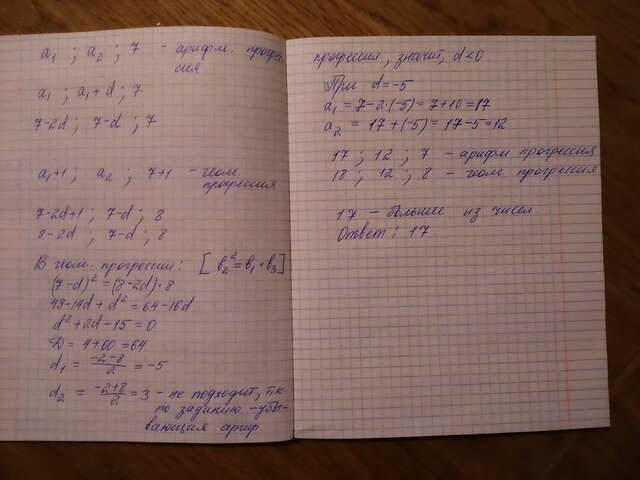 a₁ ; a₂ ; 7 - арифм. прогрес-
сия
a₁ ; a₁+d ; 7
7-2d ; 7-d ; 7
a₁+1 ; a₂ ; 7+1 - геом.
прогрессия
7-2d+1 ; 7-d ; 8
8-2d ; 7-d ; 8
В геом. прогрессии: [b₂²=b₁·b₃]
(7-d)²=(8-2d)·8
49-14d+d²=64-16d
d²+2d-15=0
D=4+60=64
d₁ = (-2-8)/2 = -5
d₂ = (-2+8)/2 = 3 - не подходит, т.к
по заданию - убы-
вающая ариф.
прогрессия, значит, d<0
При d=-5
a₁ = 7-2·(-5)=7+10=17
a₂ = 17+(-5)=17-5=12
17 ; 12 ; 7 - арифм прогрессия
18 ; 12 ; 8 - геом прогрессия
17 - большее из чисел
Ответ: 17.